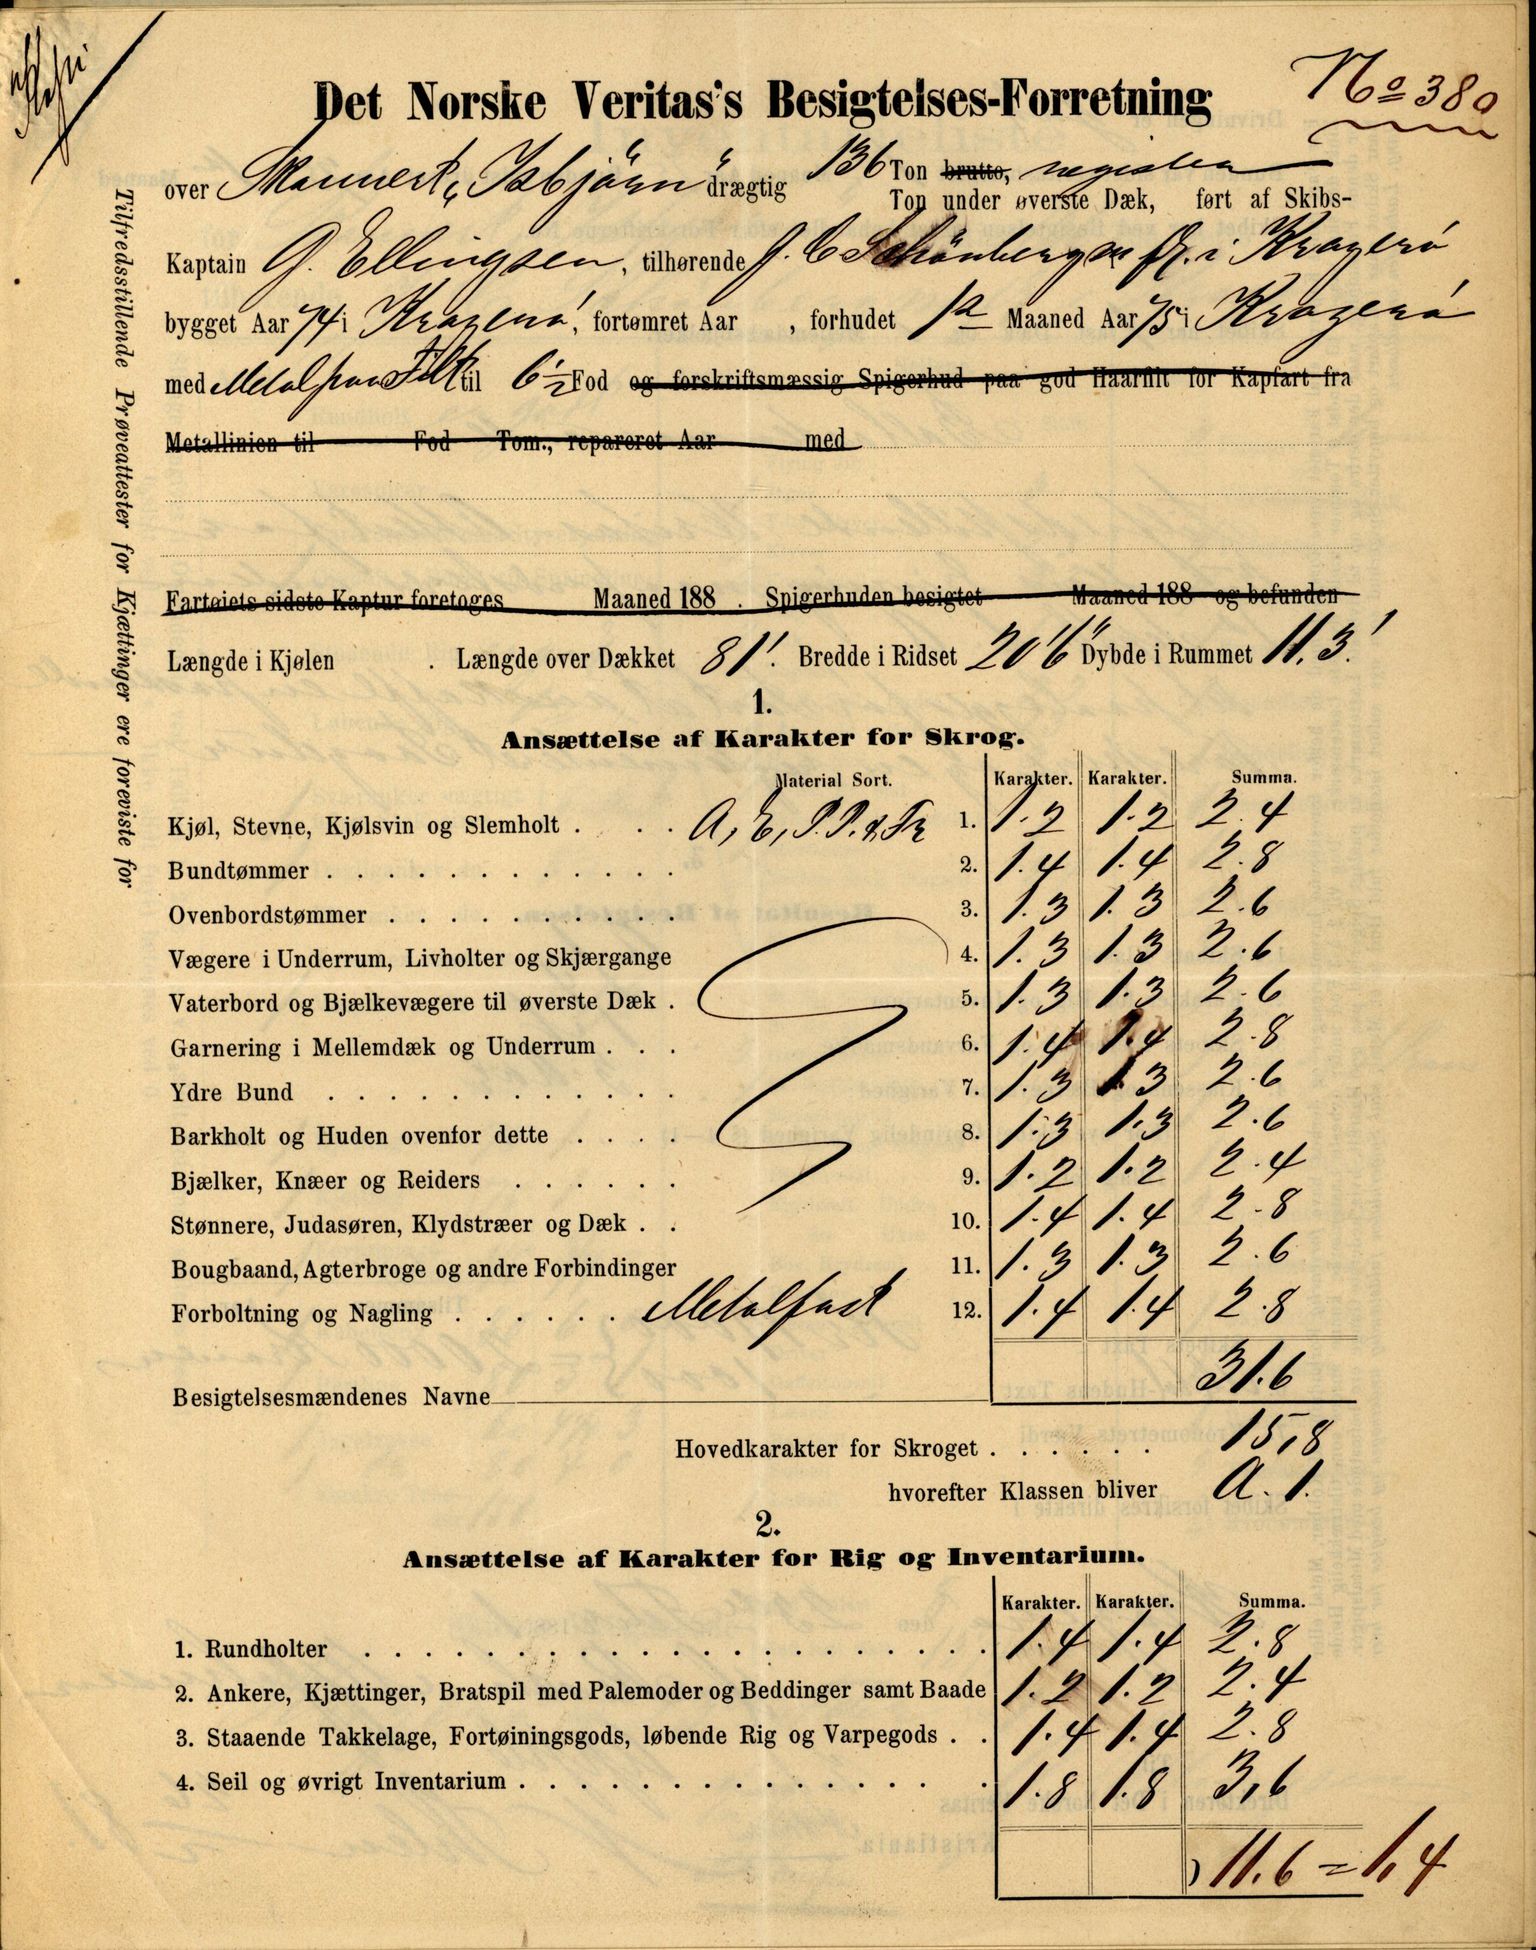 No 380
Det Norske Veritas's Besigtelses-Forretning
over Skonnert „Isbjörn" drægtig 136 Ton brutto, register
Ton under øverste Dæk, ført af Skibs-
Kaptain G. Ellingsen, tilhørende J. C Schönberg m fl. i Kragerö
bygget Aar 74 i Kragerö, fortømret Aar , forhudet Maaned Aar 75 i Kragerö
med Metal paa Filt til 6½ Fod og forskriftsmæssig Spigerhud paa god Haarfilt for Kapfart fra
Metallinien til Fod Tom., repareret Aar med
Fartøiets sidste Kaptur foretoges Maaned 188 . Spigerhuden besigtet Maaned 188 og befunden
Længde i Kjølen . Længde over Dækket 81'. Bredde i Ridset 20'6" Dybde i Rummet 11.3'.
1.
Ansættelse af Karakter for Skrog.
Material Sort. Karakter. Karakter. Summa.
Kjøl, Stevne, Kjølsvin og Slemholt . . . A, E, P.P. & Fr 1. 1.2 1.2 2.4
Bundtømmer . . . . . . . . . . . . 2. 1.4 1.4 2.8
Ovenbordstømmer . . . . . . . . . . 3. 1.3 1.3 2.6
Vægere i Underrum, Livholter og Skjærgange 4. 1.3 1.3 2.6
Vaterbord og Bjælkevægere til øverste Dæk . 5. 1.3 1.3 2.6
Garnering i Mellemdæk og Underrum . . . 6. 1.4 1.4 2.8
Ydre Bund . . . . . . . . . . . . 7. 1.3 1.3 2.6
Barkholt og Huden ovenfor dette . . . . 8. 1.3 1.3 2.6
Bjælker, Knæer og Reiders . . . . . . 9. 1.2 1.2 2.4
Stønnere, Judasøren, Klydstræer og Dæk . . 10. 1.4 1.4 2.8
Bougbaand, Agterbroge og andre Forbindinger 11. 1.3 1.3 2.6
Forboltning og Nagling . . . . . . Metalfast 12. 1.4 1.4 2.8
31.6
Besigtelsesmændenes Navne
Hovedkarakter for Skroget . . . . . . 15,8
hvorefter Klassen bliver A. 1.
2.
Ansættelse af Karakter for Rig og Inventarium.
Karakter. Karakter. Summa.
1. Rundholter . . . . . . . . . . . . . . . . . . . . . 1.4 1.4 2.8
2. Ankere, Kjættinger, Bratspil med Palemoder og Beddinger samt Baade 1.2 1.2 2.4
3. Staaende Takkelage, Fortøiningsgods, løbende Rig og Varpegods . . 1.4 1.4 2.8
4. Seil og øvrigt Inventarium . . . . . . . . . . . . . . . . 1.8 1.8 3,6
11.6 = 1,4
Tilfredsstillende Prøveattester for Kjættinger ere foreviste for